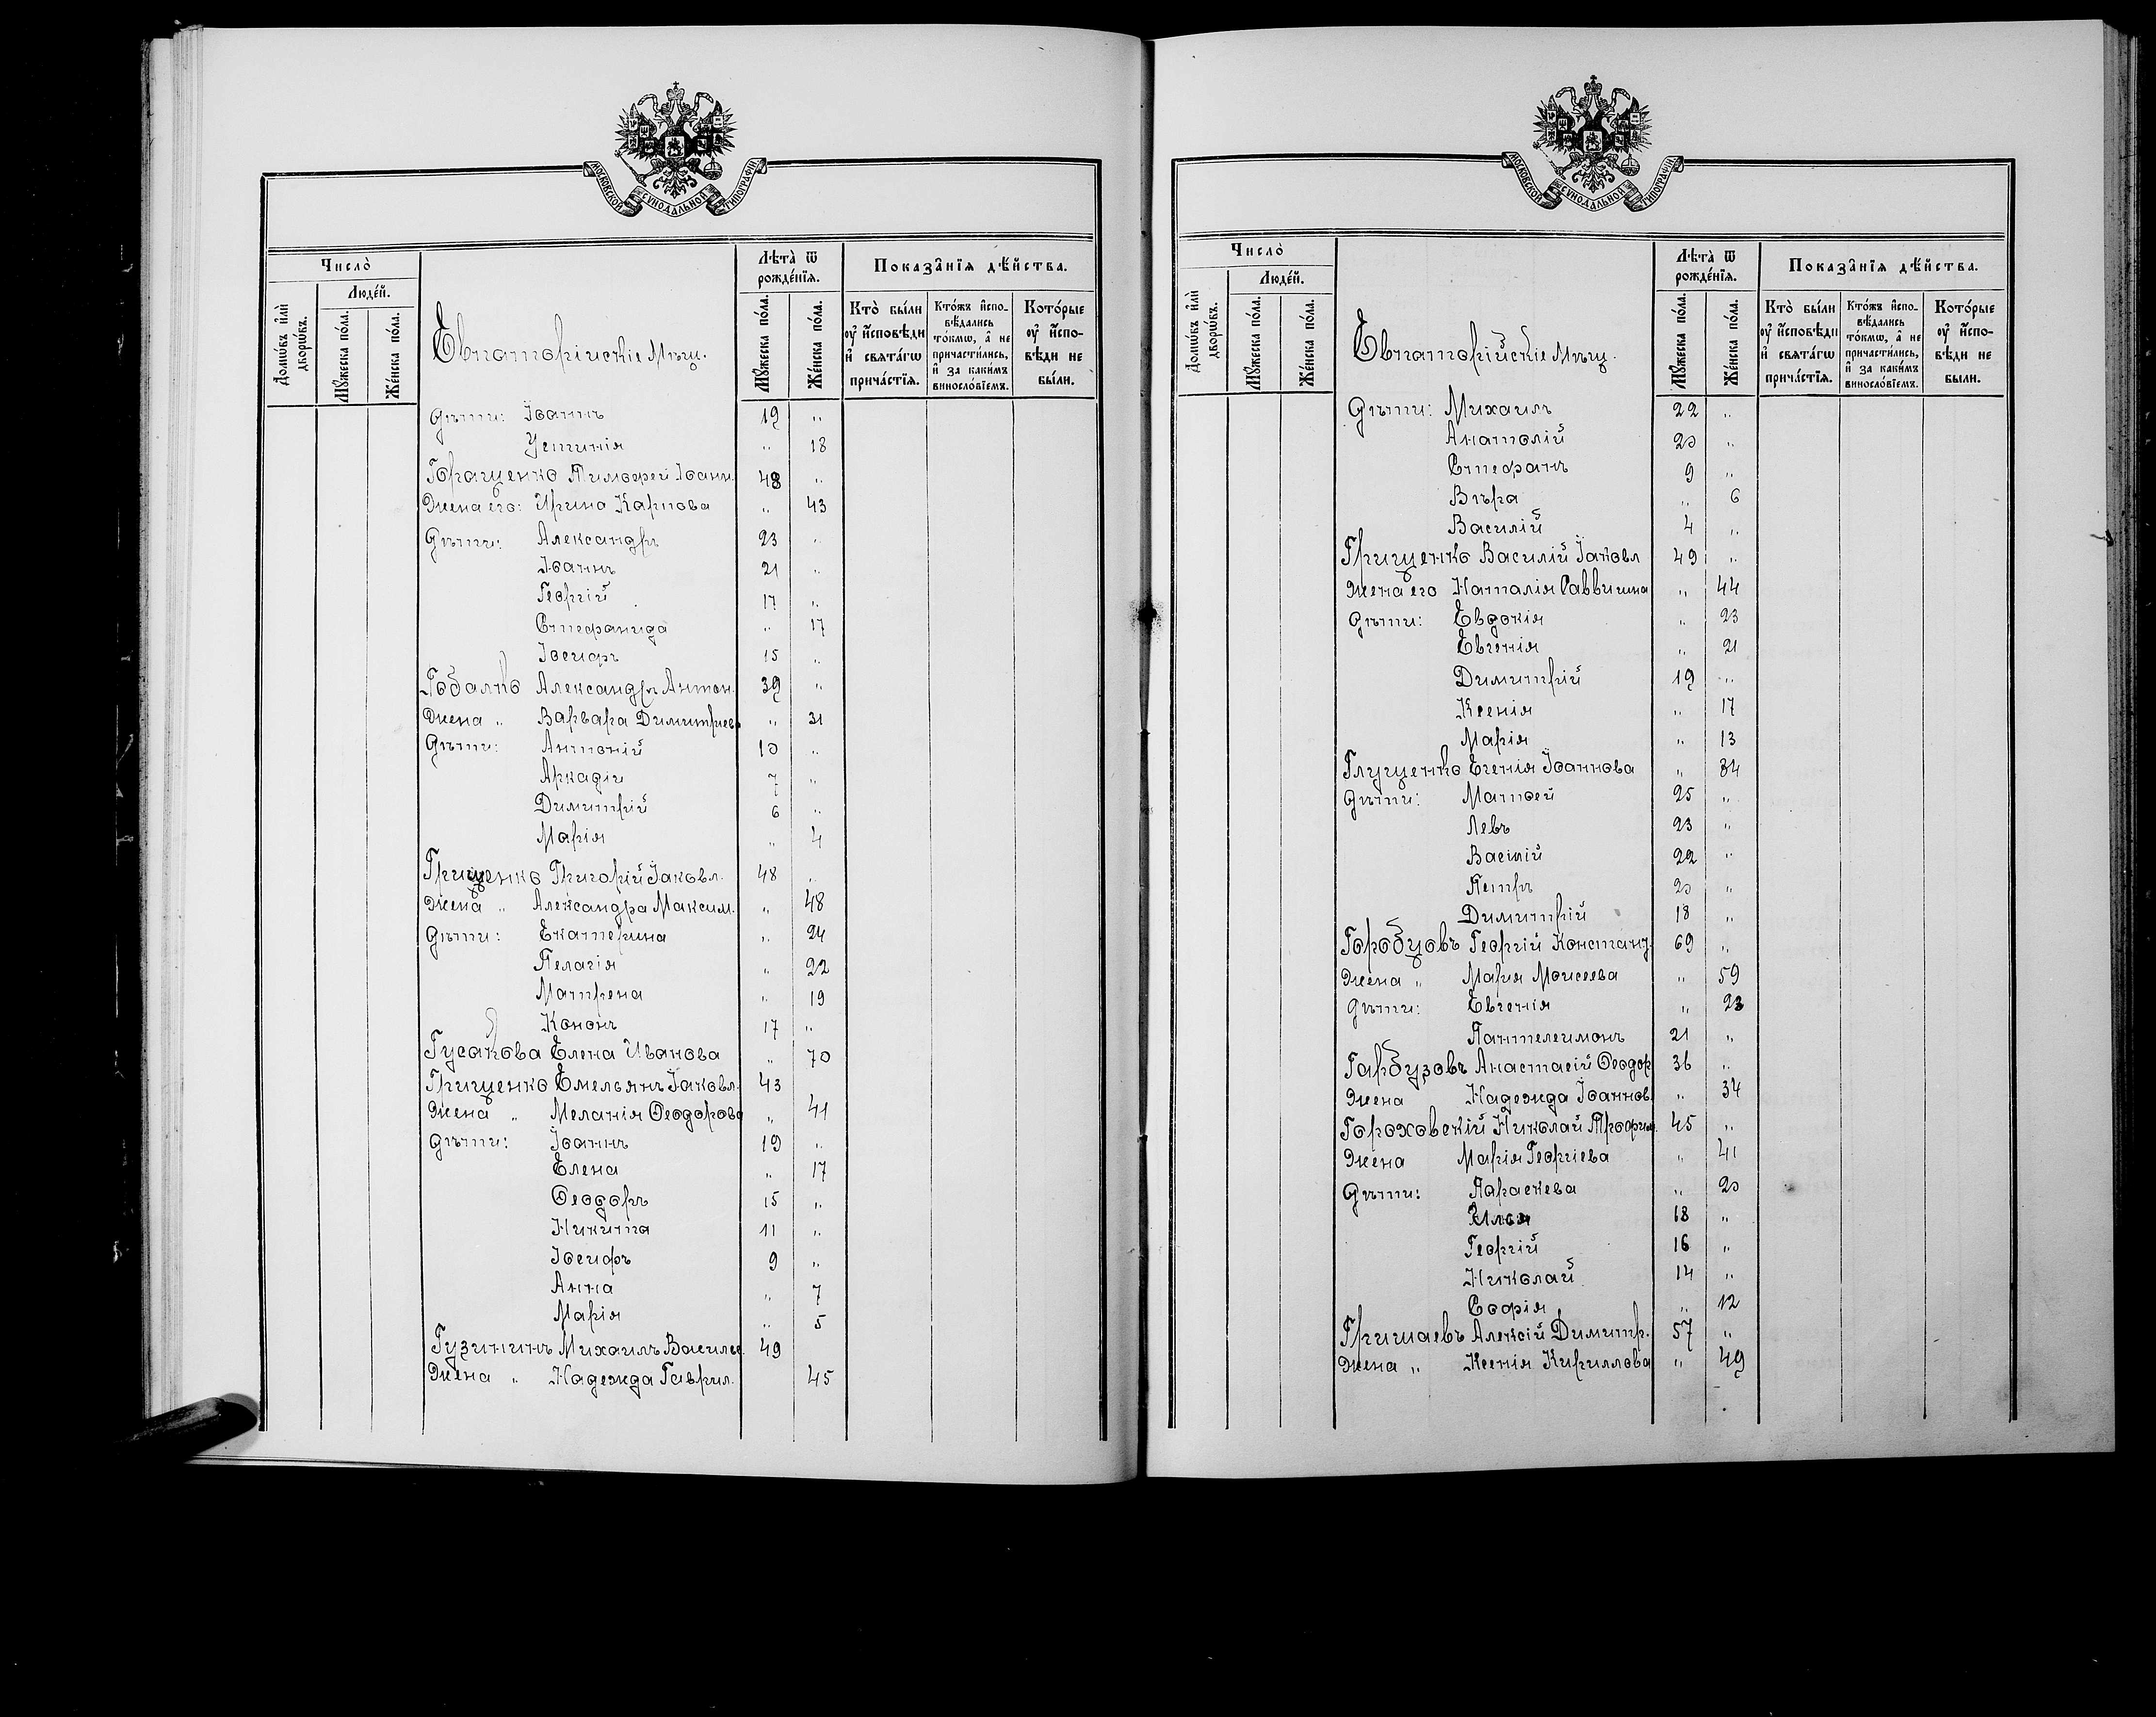 МОСКОВСКОЙ СУНОДАЛЬНОЙ ТИПОГРАФИИ
Число̀
Людéй.
Домѡ́въ и҆лѝ дворѡ́въ.
Мꙋ́жеска по́ла.
Же́нска по́ла.
Евпаторіискіе Мѣщ.
Лѣта̀ ѿ рожде́нїѧ.
Мꙋ́жеска по́ла.
Же́нска по́ла.
Показа̑нїѧ дѣ́йства.
Кто̀ бы́ли ᲂу҆ и҆сповѣ́ди и҆ свѧта́гѡ прича́стїѧ.
Кто́жъ и҆сповѣ́дались то́кмѡ, а҆ не причасти́лись, и҆ за каки́мъ винослóвїемъ.
Кото́рые ᲂу҆ и҆сповѣ́ди не бы́ли.
Дѣти: Іоаннъ 19 „
Устинія „ 18
Горащенко Тимоѳей Іоанн. 48 „
Жена его: Ирина Карпова „ 43
Дѣти: Александръ 23 „
Іоаннъ 21 „
Георгій 17 „
Стефанида „ 17
Іосифъ 15 „
Гобалко Александръ Антон. 39 „
Жена „ Варвара Димитріев „ 31
Дѣти: Антоній 10 „
Аркадій 7 „
Димитрій 6 „
Марія „ 4
Грищенко Григорій Іаковл. 48 „
Жена „ Александра Максим. „ 48
Дѣти: Екатерина „ 24
Пелагія „ 22
Матрена „ 19
Кононъ 17 „
Гусакова Елена Иванова „ 70
Грищенко Емельянъ Іаковл. 43
Жена „ Меланія Ѳеодорова „ 41
Дѣти: Іоаннъ 19 „
Елена „ 17
Ѳеодоръ 15 „
Никита 11 „
Іосифъ 9 „
Анна „ 7
Марія „ 5
Гузининъ Михаилъ Василье. 49
Жена „ Надежда Гаврил. 45
МОСКОВСКОЙ СУНОДАЛЬНОЙ ТИПОГРАФИИ
Число̀
Людéй.
Домѡ́въ и҆лѝ дворѡ́въ.
Мꙋ́жеска по́ла.
Же́нска по́ла.
Евпаторійскіе Мѣщ.
Лѣта̀ ѿ рожде́нїѧ.
Мꙋ́жеска по́ла.
Же́нска по́ла.
Показа̑нїѧ дѣ́йства.
Кто̀ бы́ли ᲂу҆ и҆сповѣ́ди и҆ свѧта́гѡ прича́стїѧ.
Кто́жъ и҆сповѣ́дались то́кмѡ, а҆ не причасти́лись, и҆ за каки́мъ винослóвїемъ.
Кото́рые ᲂу҆ и҆сповѣ́ди не бы́ли.
Дѣти: Михаилъ 22 „
Анатолій 20 „
Стефанъ 9 „
Вѣра „ 6
Василій 4 „
Грищенко Василій Іаковл 49 „
Жена его Наталія Саввична „ 44
Дѣти: Евдокія „ 23
Евгенія „ 21
Димитрій 19 „
Ксенія „ 17
Марія „ 13
Глущенко Егенія Іоаннова „ 34
Дѣти: Матѳей 25 „
Левъ 23 „
Васілій 22 „
Петръ 20 „
Димитрій 18 „
Горобцовъ Георгій Констант. 69 „
Жена „ Марія Моисеева „ 59
Дѣти: Евгенія „ 23
Пантелеимонъ 21 „
Гарбузовъ Анастасій Ѳеодор 36 „
Жена Надежда Іоаннов. „ 34
Гороховскій Николай Трофим. 45 „
Жена Марія Георгіева „ 41
Дѣти: Параскева „ 20
Илья 18 „
Георгій 16 „
Николай 14 „
Софія „ 12
Гришаевъ Алексій Димитр. 57 „
Жена „ Ксенія Кириллова „ 49